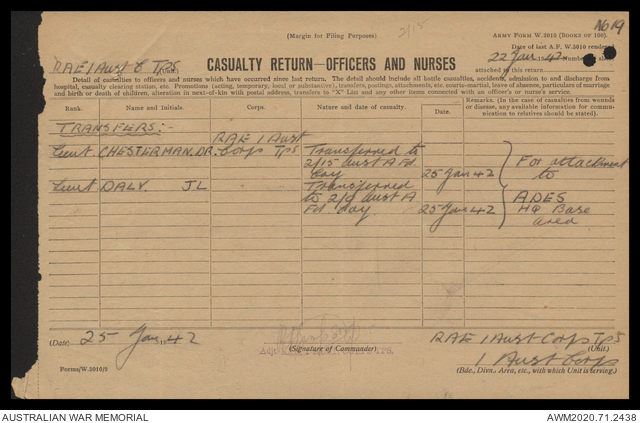 No 19
(Margin for Filing Purposes)
2/15
ARMY FORM W.3010 (BOOKS OF 100).
Date of last A.F. W.3010 rendered
22 Jan 42
RAE 1 Aust C Tps
(Unit)
CASUALTY RETURN—OFFICERS AND NURSES
attached to this return
Detail of casualties to officers and nurses which have occurred since last return. The detail should include all battle casualties, accidents, admission to and discharge from
hospital, casualty clearing station, etc. Promotions (acting, temporary, local or substantive), transfers, postings, attachments, etc. courts-martial, leave of absence, particulars of marriage
and birth or death of children, alteration in next-of-kin with postal address, transfers to "X" List and any other items connected with an officer's or nurse's service.
Rank.
Name and Initials.
Corps.
Nature and date of casualty.
Date.
Remarks. (In the case of casualties from wounds
or disease, any available information for communication
to relatives should be stated).
TRANSFERS:
RAE 1 Aust
Lieut CHESTERMAN. DR. Corps Tps Transferred to
2/15 Aust A Fd
Coy 25 Jan 42
For attachment
to
Lieut DALY JL Transferred
to 2/9 Aust A
Fd Coy 25 Jan 42
ADES
HQ Base
area
(Date) 25 Jan 1942
(Signature of Commander)
RAE 1 Aust Corps Tps
(Unit.)
1 Aust Corps
(Bde., Divn., Area, etc., with which Unit is serving.)
Forms/W.3010/2
AUSTRALIAN WAR MEMORIAL
AWM2020.71.2438